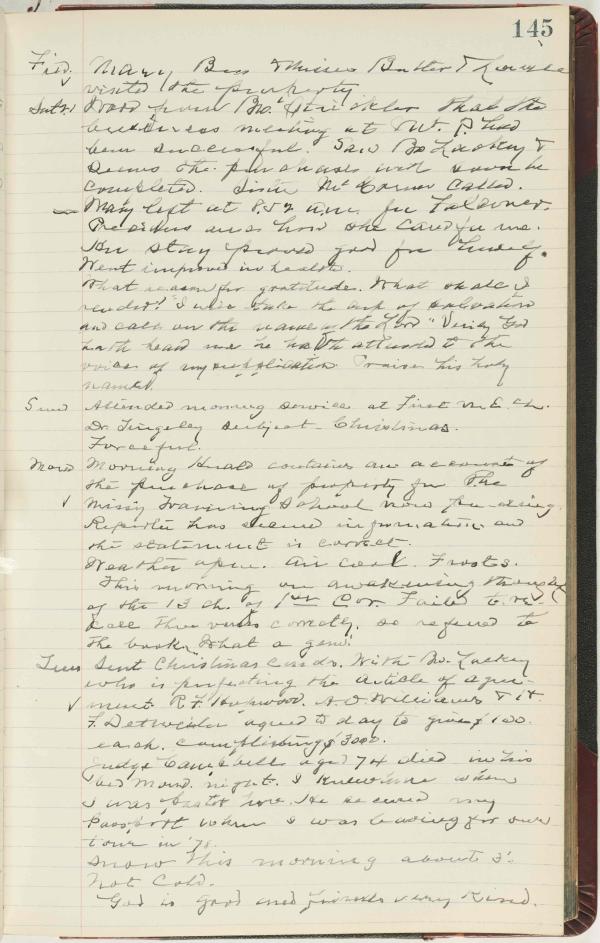 145
Frid. Mary Bess & Misses Butter & Louise
visited the property
Sat. Word from Bro. Strickler that the
business meeting at Mt. P. had
been successful. Saw Bro Lackey &
seems the purchases will soon be
completed. Sister Mc Cormic called.
Mary left at 8.52 a.m. for
Precious was how she cared for me.
Her stay proved good for herself.
Went improved in health.
What reason for gratitude. What shall I
render? "I will take the cup of salvation
and call on the name of the Lord" "Verily God
hath heard me he hath attended to the
voice of my supplication. Praise his holy
name.
Sund Attended morning service at First M.E. Ch.
Dr. Tingeley subject - Christmas.
Forceful.
Mond Morning Herald contains an account of
the purchase of property for The
Missy Training School now pending.
Reporter has secured information and
the statement is correct.
Weather open. Air cool. Frosts.
This morning on awakening thought
of the 13 ch. of 1st Cor. Failed to re-
call three verses correctly, so referred to
the book. "What a gem."
Tues Sent Christmas cards. With Mr. Lackey
who is perfecting the article of agree-
ment. R. F. Hopwood. A. D. Williams & H.
F. Detweiler agreed to day to give $100.
each. Completing $3000.
Judge Campbell aged 74 died in his
bed Mond. night. I knew him when
I was pastor here. He secured my
Passport when I was leaving for our
tour in '78.
Snow this morning about 3".
Not Cold.
God is good and friends very kind.